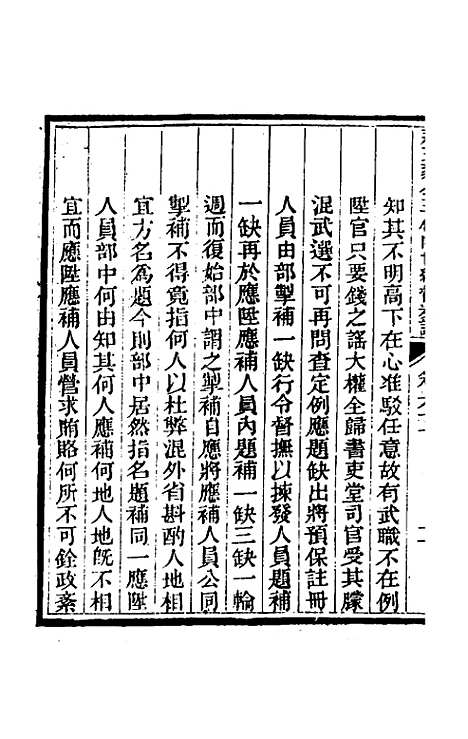 知其不明高下在心准駁任意故有武職不在例
陞官只要錢之謡大權全歸書吏堂司官受其朦
混武選不可再問查定例應題缺出將預保註冊
人員由部掣補一缺行令督撫以揀發人員題補
一缺再於應陞應補人員內題補一缺三缺一輪
週而復始部中謂之掣補自應將應補人員公同
掣補不得竟指何人以杜弊混外省斟酌人地相
宜方名為題今則部中居然指名題補同一應陞
人員部中何由知其何人應補何地人地旣不相
宜而應陞應補人員營求賄賂何所不可銓政紊